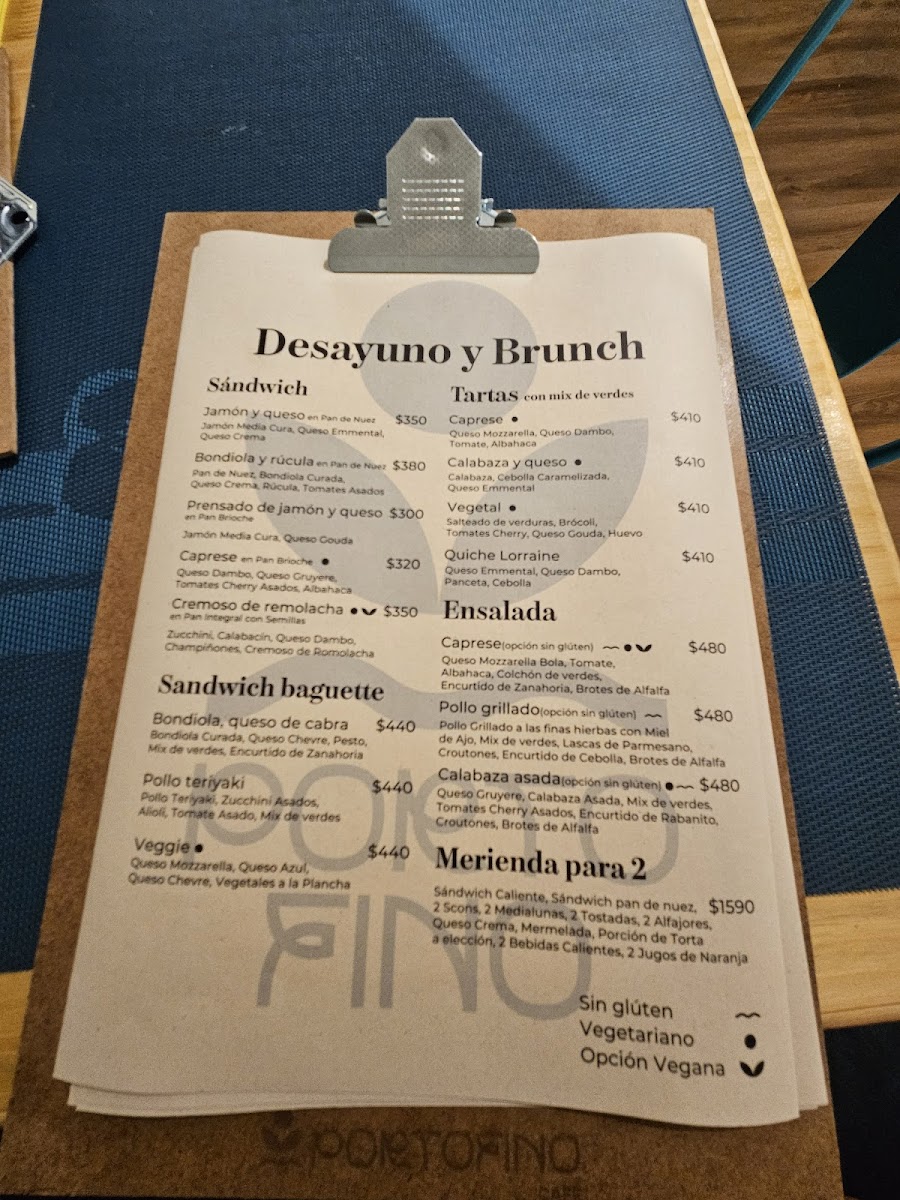 Desayuno y Brunch
Sándwich
Jamón y queso en Pan de Nuez $350
Jamón Media Cura, Queso Emmental,
Queso Crema
Bondiola y rúcula en Pan de Nuez $380
Pan de Nuez, Bondiola Curada,
Queso Crema, Rúcula, Tomates Asados
Prensado de jamón y queso $300
en Pan Brioche
Jamón Media Cura, Queso Gouda
Caprese en Pan Brioche $320
Queso Dambo, Queso Gruyere,
Tomates Cherry Asados, Albahaca
Cremoso de remolacha $350
en Pan Integral con Semillas
Zucchini, Calabacín, Queso Dambo,
Champiñones, Cremoso de Romolacha
Sandwich baguette
Bondiola, queso de cabra $440
Bondiola Curada, Queso Chevre, Pesto,
Mix de verdes, Encurtido de Zanahoria
Pollo teriyaki $440
Pollo Teriyaki, Zucchini Asados,
Alioli, Tomate Asado, Mix de verdes
Veggie $440
Queso Mozzarella, Queso Azul,
Queso Chevre, Vegetales a la Plancha
Tartas con mix de verdes
Caprese $410
Queso Mozzarella, Queso Dambo,
Tomate, Albahaca
Calabaza y queso $410
Calabaza, Cebolla Caramelizada,
Queso Emmental
Vegetal $410
Salteado de verduras, Brócoli,
Tomates Cherry, Queso Gouda, Huevo
Quiche Lorraine $410
Queso Emmental, Queso Dambo,
Panceta, Cebolla
Ensalada
Caprese(opción sin glúten) $480
Queso Mozzarella Bola, Tomate,
Albahaca, Colchón de verdes,
Encurtido de Zanahoria, Brotes de Alfalfa
Pollo grillado(opción sin glúten) $480
Pollo Grillado a las finas hierbas con Miel
de Ajo, Mix de verdes, Lascas de Parmesano,
Croutones, Encurtido de Cebolla, Brotes de Alfalfa
Calabaza asada(opción sin glúten) $480
Queso Gruyere, Calabaza Asada, Mix de verdes,
Tomates Cherry Asados, Encurtido de Rabanito,
Croutones, Brotes de Alfalfa
Merienda para 2
Sándwich Caliente, Sándwich pan de nuez, $1590
2 Scons, 2 Medialunas, 2 Tostadas, 2 Alfajores,
Queso Crema, Mermelada, Porción de Torta
a elección, 2 Bebidas Calientes, 2 Jugos de Naranja
Sin glúten
Vegetariano
Opción Vegana
PORTO
FINO
PORTOFINO
CAFÉ